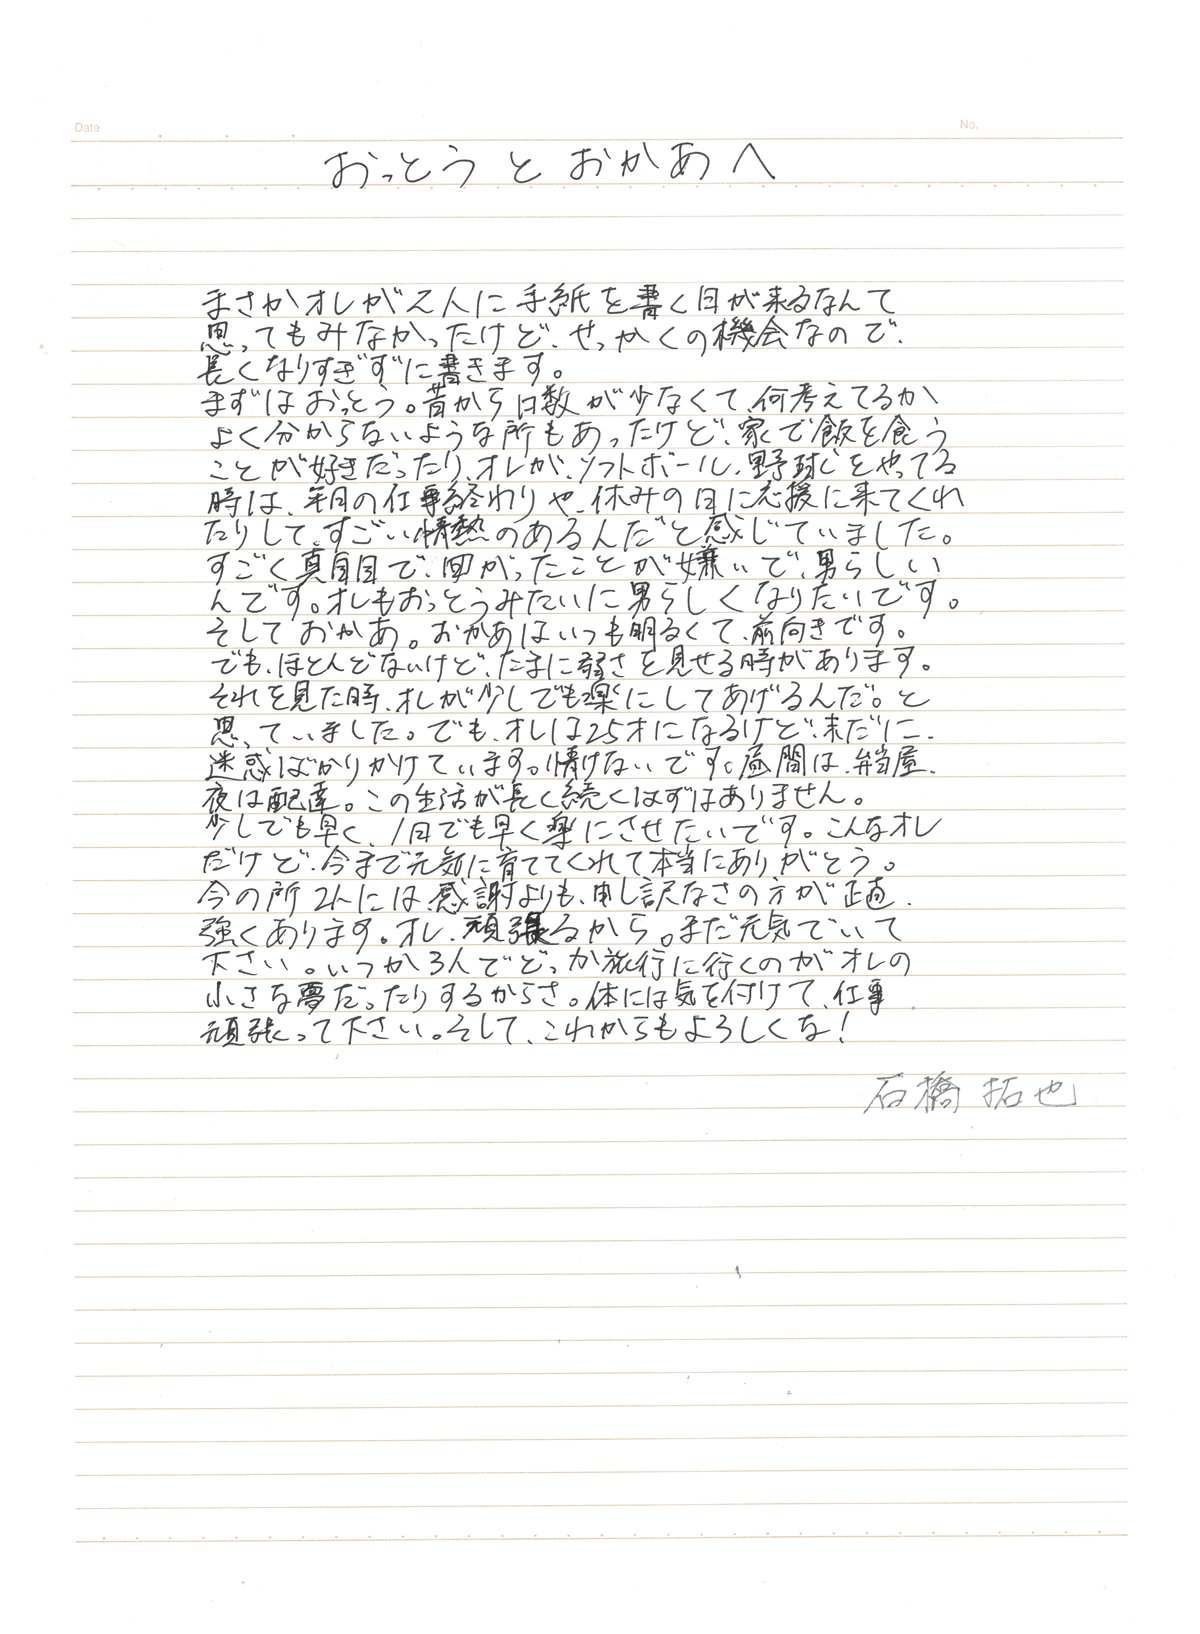 Date
No.
おっとうとおかあへ
まさかオレが2人に手紙を書く日が来るなんて
思ってもみなかったけど、せっかくの機会なので、
長くなりすぎずに書きます。
まずはおっとう。昔から口数が少なくて、何考えてるか
よく分からないような所もあったけど、家で飯を食う
ことが好きだったり、オレが、ソフトボール、野球をやってる
時は、毎日の仕事終わりや、休みの日に応援に来てくれ
たりして、すごい情熱のあるんだと感じていました。
すごく真面目で、曲がったことが嫌いで、男らしい
んです。オレもおっとうみたいに男らしくなりたいです。
そしておかあ。おかあはいつも明るくて、前向きです。
でも、ほとんどないけど、たまに弱さを見せる時があります。
それを見た時、オレが少しでも楽にしてあげるんだ。と
思っていました。でも、オレは25才になるけど、未だに、
迷惑ばかりかけています。情けないです。昼間は、弁当屋、
夜は配達。この生活が長く続くはずはありません。
少しでも早く、1日でも早く楽にさせたいです。こんなオレ
だけど、今まで元気に育ててくれて本当にありがとう。
今の所2人には、感謝よりも、申し訳なさの方が正直、
強くあります。オレ、頑張るから。まだ元気でいて
下さい。いつか3人でどっか旅行に行くのがオレの
小さな夢だったりするからさ。体には気を付けて、仕事
頑張って下さい。そして、これからもよろしくな!
石橋拓也